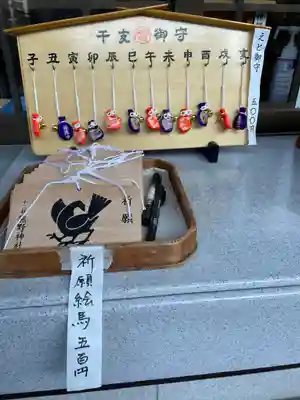 干支御守
子丑寅卯辰巳午未申酉戌亥
えと御守 五〇〇円
祈願
熊野神社
祈願絵馬 五百円